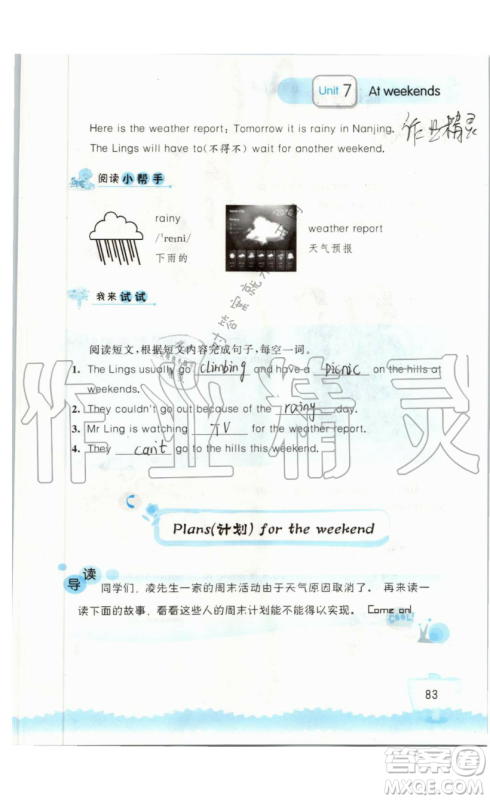 Unit 7 At weekends
Here is the weather report: Tomorrow it is rainy in Nanjing.
作业精灵
The Lings will have to(不得不) wait for another weekend.
阅读小帮手
rainy
/'reɪni/
下雨的
weather report
天气预报
我来试试
阅读短文,根据短文内容完成句子,每空一词。
1. The Lings usually go climbing and have a picnic on the hills at
weekends.
2. They couldn't go out because of the rainy day.
3. Mr Ling is watching TV for the weather report.
4. They can't go to the hills this weekend.
作业精灵
Plans(计划) for the weekend
导读
同学们,凌先生一家的周末活动由于天气原因取消了。 再来读一
读下面的故事,看看这些人的周末计划能不能得以实现。 Come on!
COOL!
83
答案圈